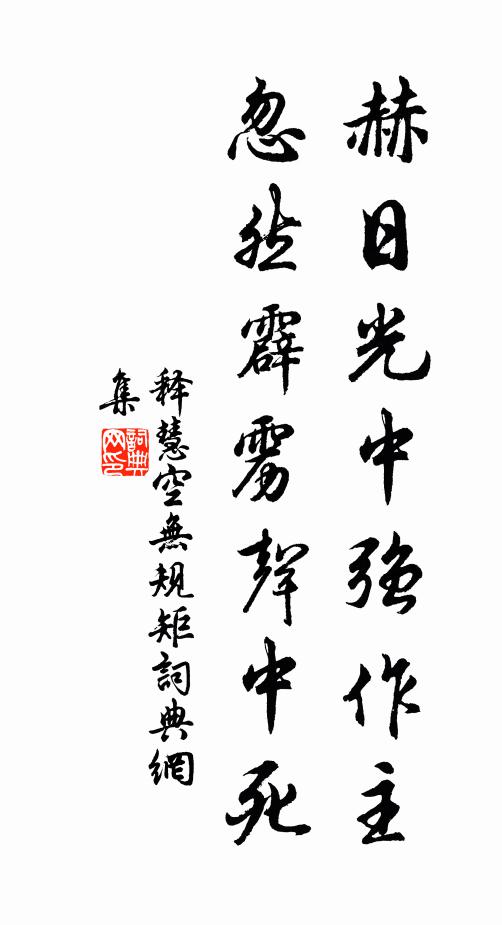 赫日光中強作主
忽然霹靂聲中死
释慧空無規矩詞典網
集
詞典
网印